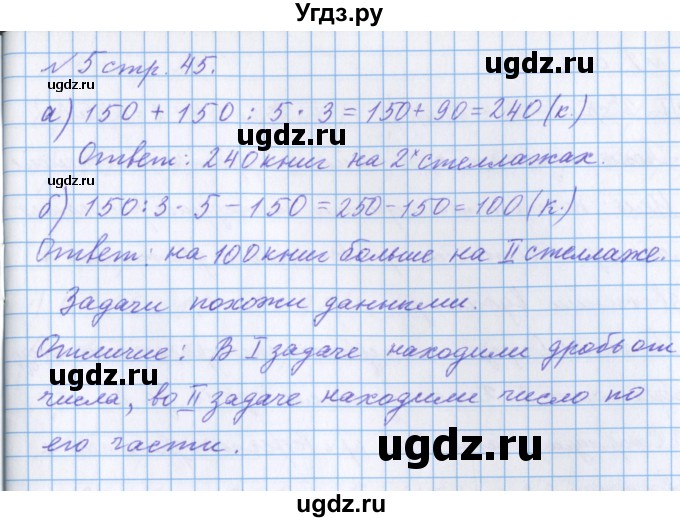 Угдз.ру
№ 5 стр. 45.
а) 150 + 150 : 5 · 3 = 150 + 90 = 240 (к.)
Ответ: 240 книг на 2ˣ стеллажах.
б) 150 : 3 · 5 - 150 = 250 - 150 = 100 (к.)
Ответ: на 100 книг больше на II стеллаже.
Задачи похожи данными.
Отличие: В I задаче находили дробь от
числа, во II задаче находили число по
его части.
ugdz.ru
ugdz.ru
ugdz.ru
ugdz.ru
ugdz.ru
ugdz.ru
ugdz.ru
ugdz.ru
ugdz.ru
ugdz.ru